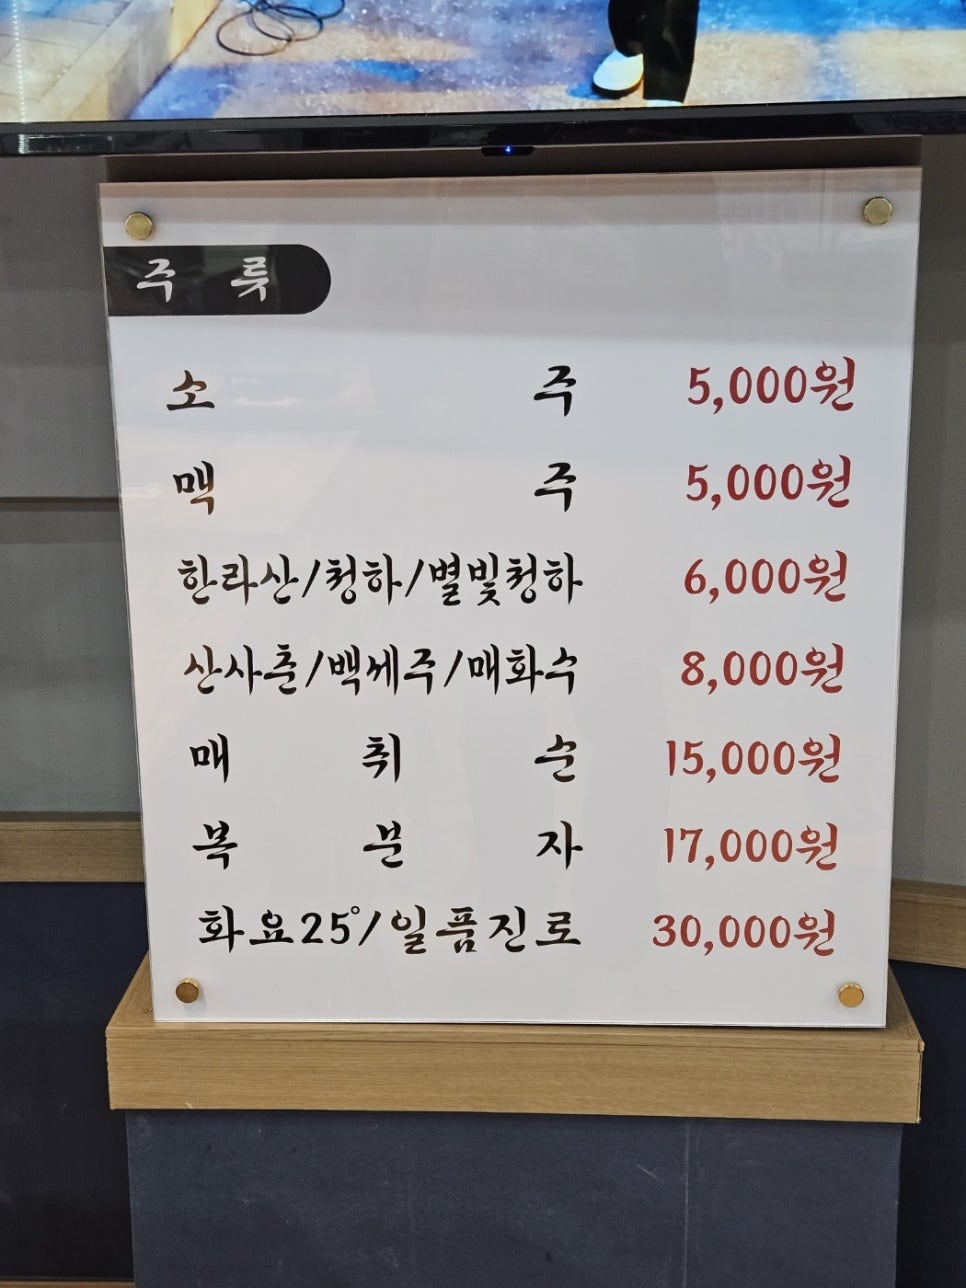 주 륫
소 주 5,000원
맥 주 5,000원
한라산/청하/별빛청하 6,000원
산사춘/백세주/매화수 8,000원
매 취 순 15,000원
복 분 자 17,000원
화요25°/일품진로 30,000원